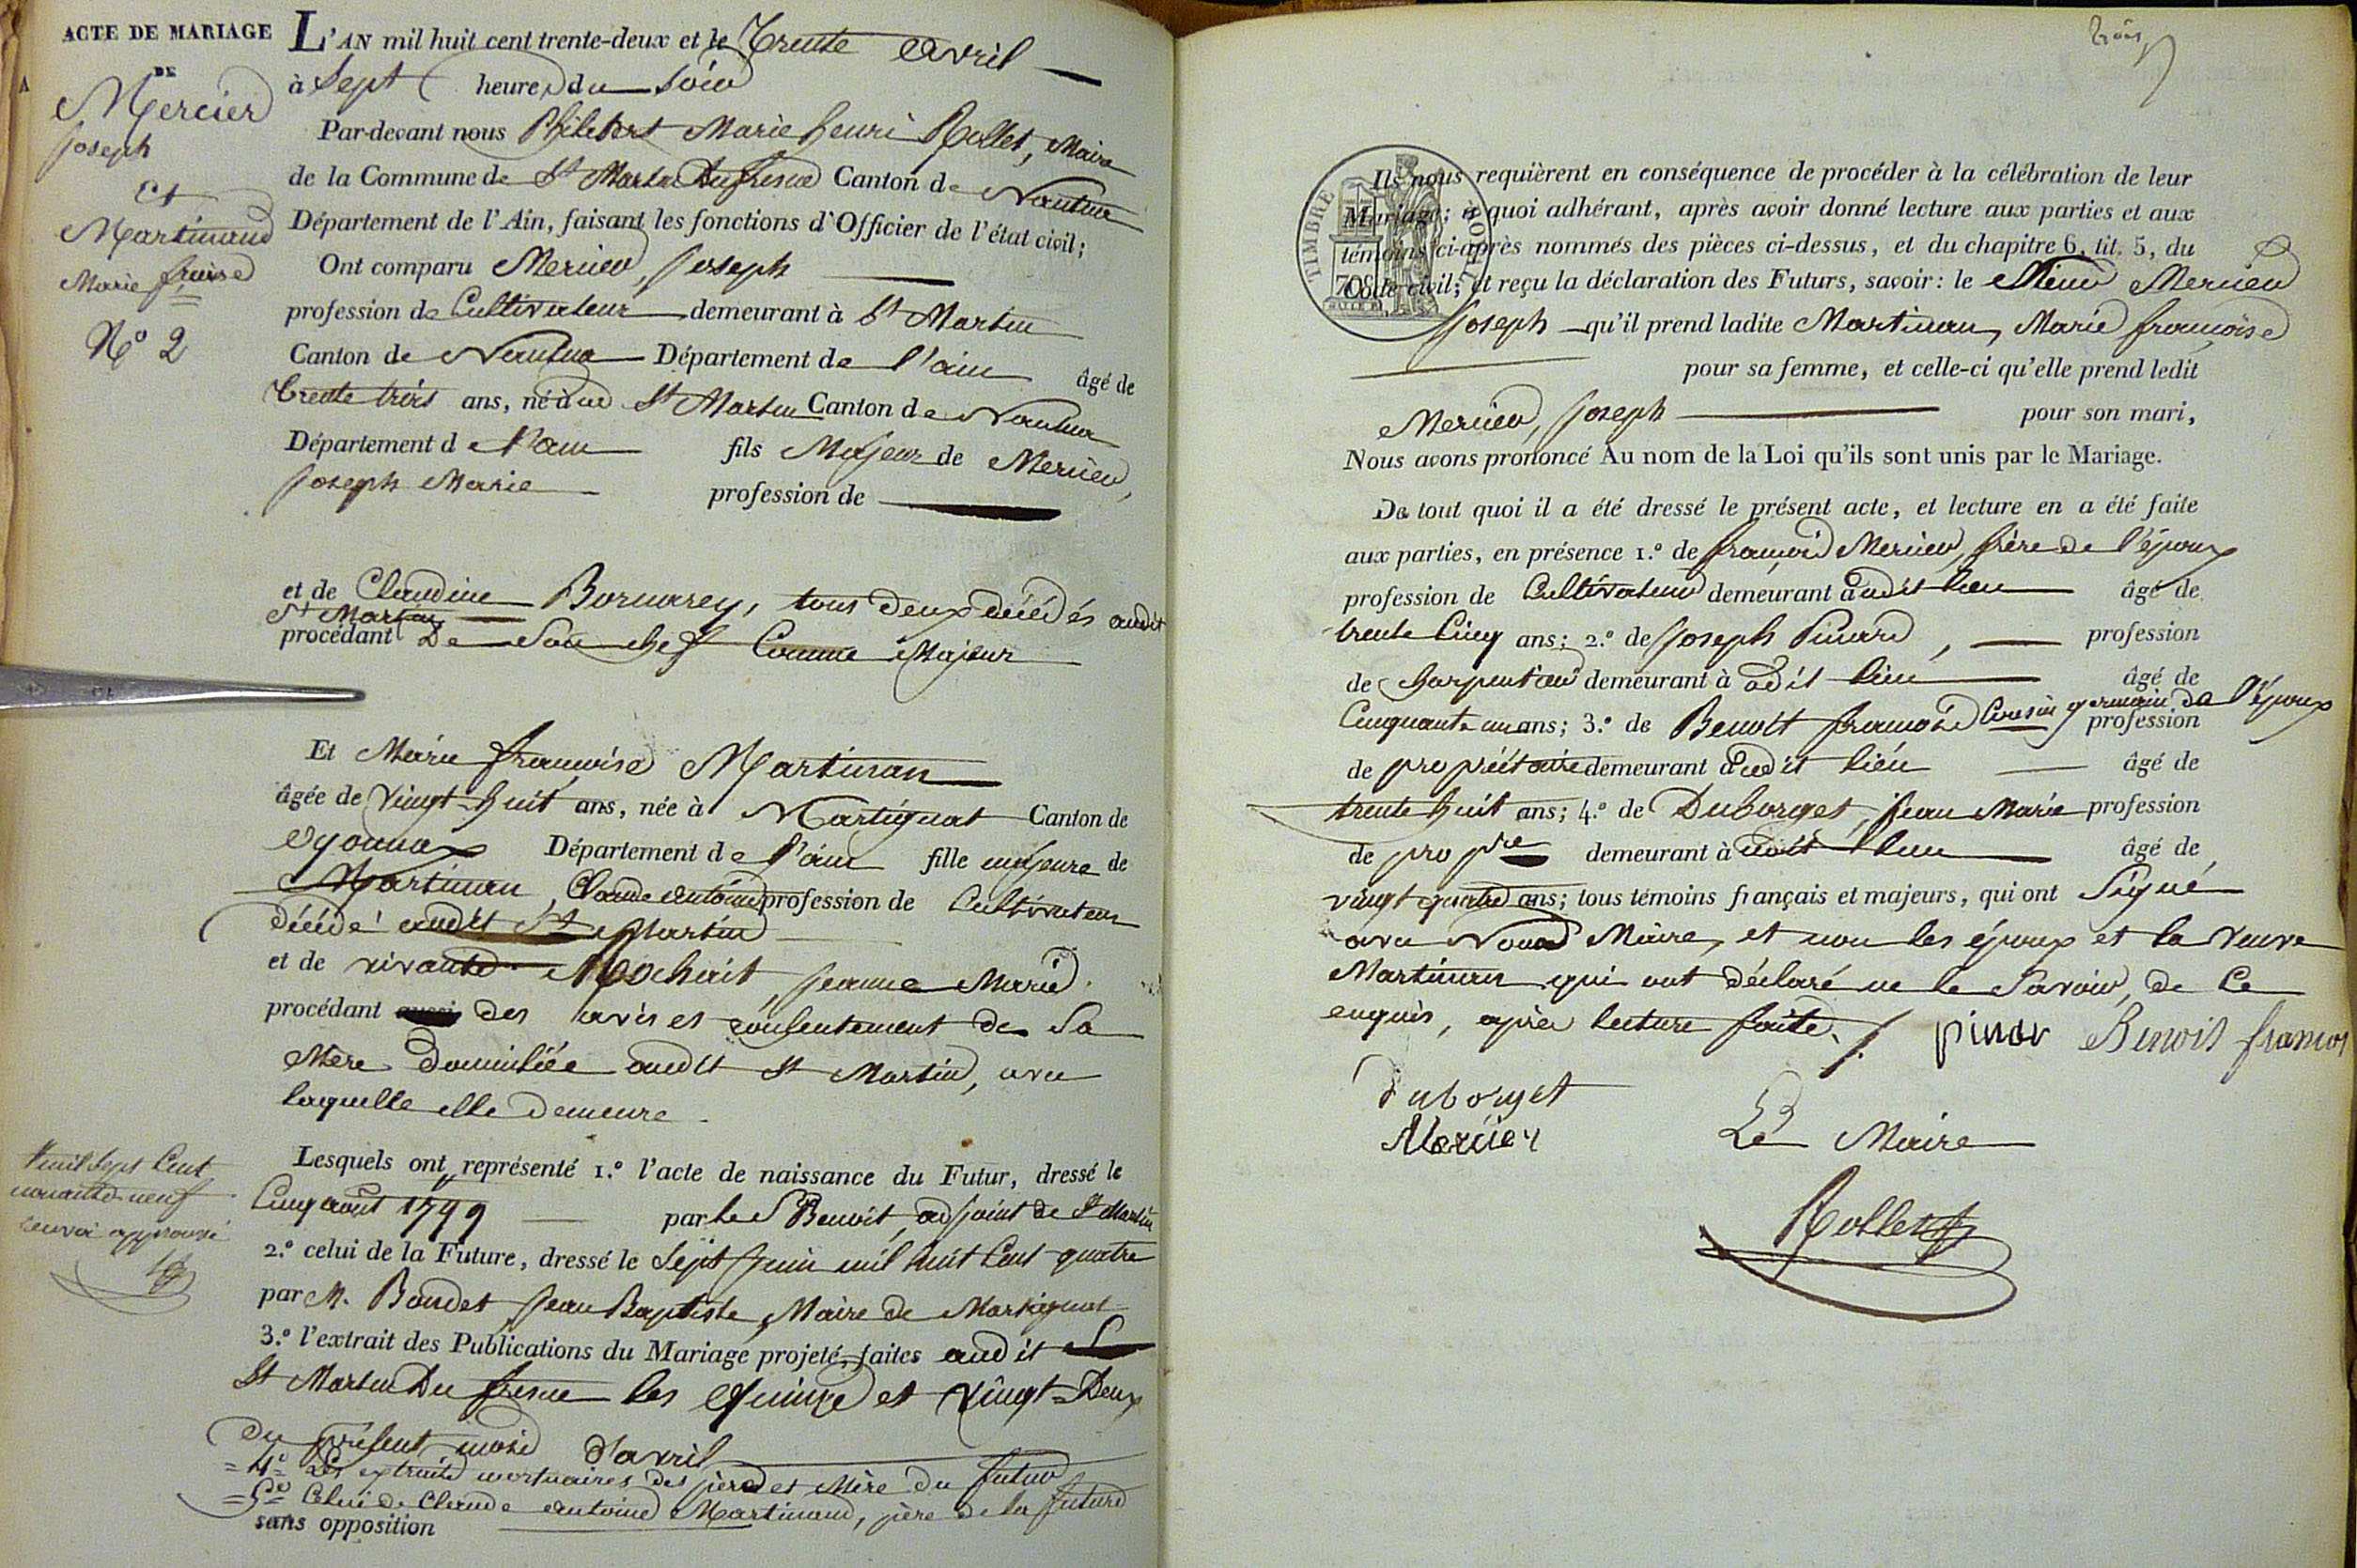 ACTE DE MARIAGE
DE
Mercier
Joseph
Et
Martinand
Marie fçoise
N.º 2
L'AN mil huit cent trente-deux et le Trente Avril
à Sept heures du Soir
Par-devant nous Philibert Marie henri Rollet, Maire
de la Commune de St Martin Dufresne Canton de Nantua
Département de l'Ain, faisant les fonctions d'Officier de l'état civil;
Ont comparu Mercier, Joseph
profession de Cultivateur demeurant à St Martin
Canton de Nantua Département de l'ain âgé de
trente trois ans, né à St Martin Canton de Nantua
Département de l'ain fils Majeur de Mercier,
Joseph Marie profession de
et de Claudine Bornarey, tous deux décédés audit
St Martin
procédant De Son chef Comme Majeur
Et Marie françoise Martinan
âgée de Vingt-huit ans, née à Martignat Canton de
Oyonnax Département de l'ain fille majeure de
Martinan, Claude antoine profession de Cultivateur
décédé audit St Martin
et de vivante Mochait, Jeanne Marie
procédant des avis et consentement de Sa
Mère Domiciliée audit St Martin, avec
laquelle elle demeure
Lesquels ont représenté 1.º l'acte de naissance du Futur, dressé le
Cinq août 1799 par le S Benoit, adjoint de St Martin
mil sept Cent
nonante-neuf
renvoi approuvé
2.º celui de la Future, dressé le Sept Juin mil huit Cent quatre
par M. Boudet Jean Baptiste, Maire de Martignat
3.º l'extrait des Publications du Mariage projeté, faites audit
St Martin Du fresne les Quinze et Vingt-Deux
Du présent mois d'avril
= 4º Les extraits mortuaires des père et Mère du futur
= 5º Celui de Claude antoine Martinand, père de la future
sans opposition
trois
TIMBRE ROYAL
70
Ils nous requièrent en conséquence de procéder à la célébration de leur
Mariage; à quoi adhérant, après avoir donné lecture aux parties et aux
témoins ci-après nommés des pièces ci-dessus, et du chapitre 6, tit. 5, du
Code civil; et reçu la déclaration des Futurs, savoir: le Sieur Mercier
Joseph qu'il prend ladite Martinan, Marie françoise
pour sa femme, et celle-ci qu'elle prend ledit
Mercier, Joseph pour son mari,
Nous avons prononcé Au nom de la Loi qu'ils sont unis par le Mariage.
De tout quoi il a été dressé le présent acte, et lecture en a été faite
aux parties, en présence 1.º de françois Mercier, frère de l'époux
profession de Cultivateur demeurant audit lieu âgé de
trente Cinq ans; 2.º de Joseph Pinard, profession
de Charpentier demeurant à udit lieu âgé de
Cinquante un ans; 3.º de Benoit françois Cousin germain de l'époux profession
de propriétaire demeurant audit lieu âgé de
trente huit ans; 4.º de Duborget, Jean Marie profession
de propre demeurant à udit lieu âgé de
vingt quatre ans; tous témoins français et majeurs, qui ont Signé
avec Nous Maire, et non les époux et la Veuve
Martinan qui ont déclaré ne le Savoir, de Ce
enquis, après lecture faite.
pinar Benoit françois
duborget
Mercier
Le Maire
Rollet